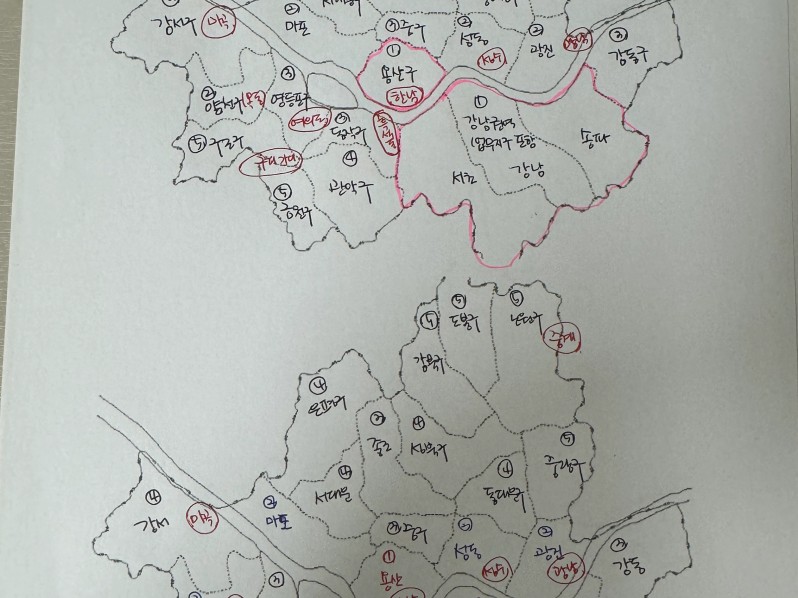 강서구
마곡
②
마포
③중구
②
성동
성수
②
광진
③
강동구
①
용산구
한남
②
양천구
목동
③
영등포구
여의도
③
동작구
흑석
①
강남권역
(업무지구 포함
송파
서초
강남
⑤구로구
구디가디
④
관악구
⑤
금천구
⑤
도봉구
⑤
노원구
중계
⑤
강북구
④
은평구
③
종로
④
성북구
④
서대문
④
동대문구
⑤
중랑구
④
강서
마곡
②
마포
③중구
②
성동
성수
②
광진
광남
③
강동
①
용산
④